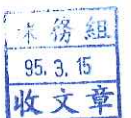 務組
95.3.15
收文章